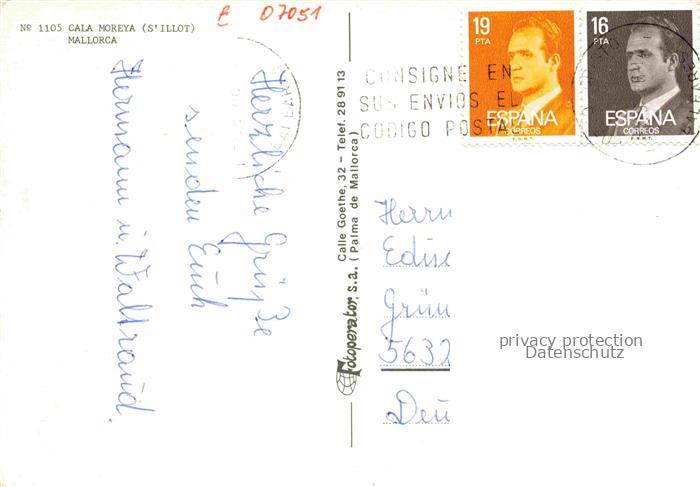 Nº 1105 CALA MOREYA (S'ILLOT)
MALLORCA
E 07051
Herzliche Grüße
senden Euch
Hermann u. Waltraud.
Fotoperator, s.a. (Palma de Mallorca)
Calle Goethe, 32 – Telef. 28 91 13
CONSIGNE EN
SUS ENVIOS EL
CODIGO POSTAL
19
PTA
ESPAÑA
CORREOS
F.N.M.T.
16
PTA
ESPAÑA
CORREOS
F.N.M.T.
Herrn
5632
privacy protection
Datenschutz